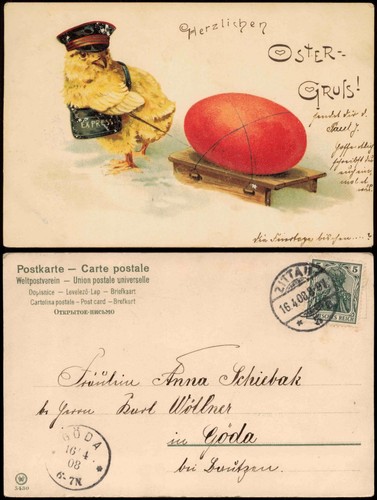 Herzlichen
Oster-
Gruß!
EXPRESS
sendet dir d.
Hoffentlich
schreibst du
auch ein-
mal
Postkarte — Carte postale
Weltpostverein — Union postale universelle
Dopisnice — Levelező-Lap — Briefkaart
Cartolina postale — Post card — Brefkort
Открытое-письмо
ZITTAU
16.4.08.
5
DEUTSCHES REICH
Fräulein Anna Schiebak
bei Herrn Karl Wöllner
in Göda
bei Bautzen.
GÖDA
16/4
08
6-7N.